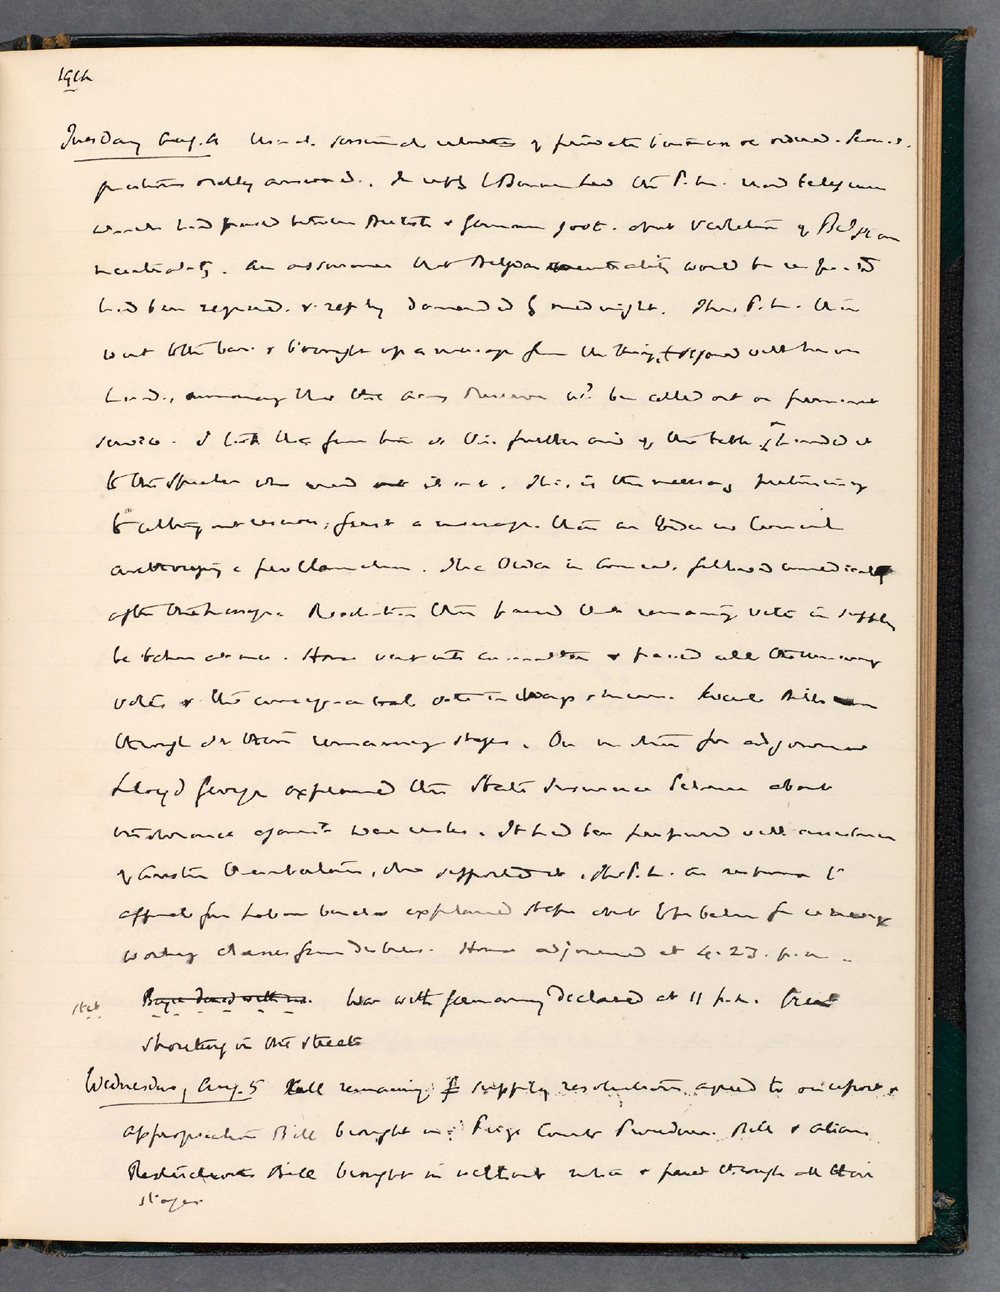 1914
Tuesday Aug. 4 Usual sessional returns of private business &c ordered. Some
questions orally answered. In reply to Bonar Law the P.M. read telegrams
which had passed between British & German Govt. about violation of Belgian
neutrality. An assurance that Belgian neutrality would be respected
had been required & reply demanded by midnight. The P.M. then
went to the bar & brought up a message from the King, signed with his own
hand, announcing that the Army Reserve wd. be called out on permanent
service. I took this from him at the further end of the table & handed it
to the Speaker who read it out. This is the necessary preliminary
to calling out reserves; first a message, then an Order in Council
authorising a proclamation. The Order in Council followed immediately
after the message. Resolution then passed that remaining votes in supply
be taken at once. House went into committee & passed all the remaining
votes & the consequential vote in Ways & Means. Several Bills
through all their remaining stages. On motion for adjournment
Lloyd George explained the State Insurance Scheme about
insurance against war risks. It had been prepared with assistance
of Austen Chamberlain, who supported it. The P.M. in response to
appeals from Labour benches explained steps about to be taken for
working classes from distress. House adjourned at 4.23 p.m.
stet Bryce dined with us. War with Germany declared at 11 p.m. Great
shouting in the streets
Wednesday, Aug. 5 All remaining supply resolutions agreed to on report &
Appropriation Bill brought in. Prize Courts Procedure Bill & Aliens
Restriction Bill brought in without notice & passed through all their
stages.